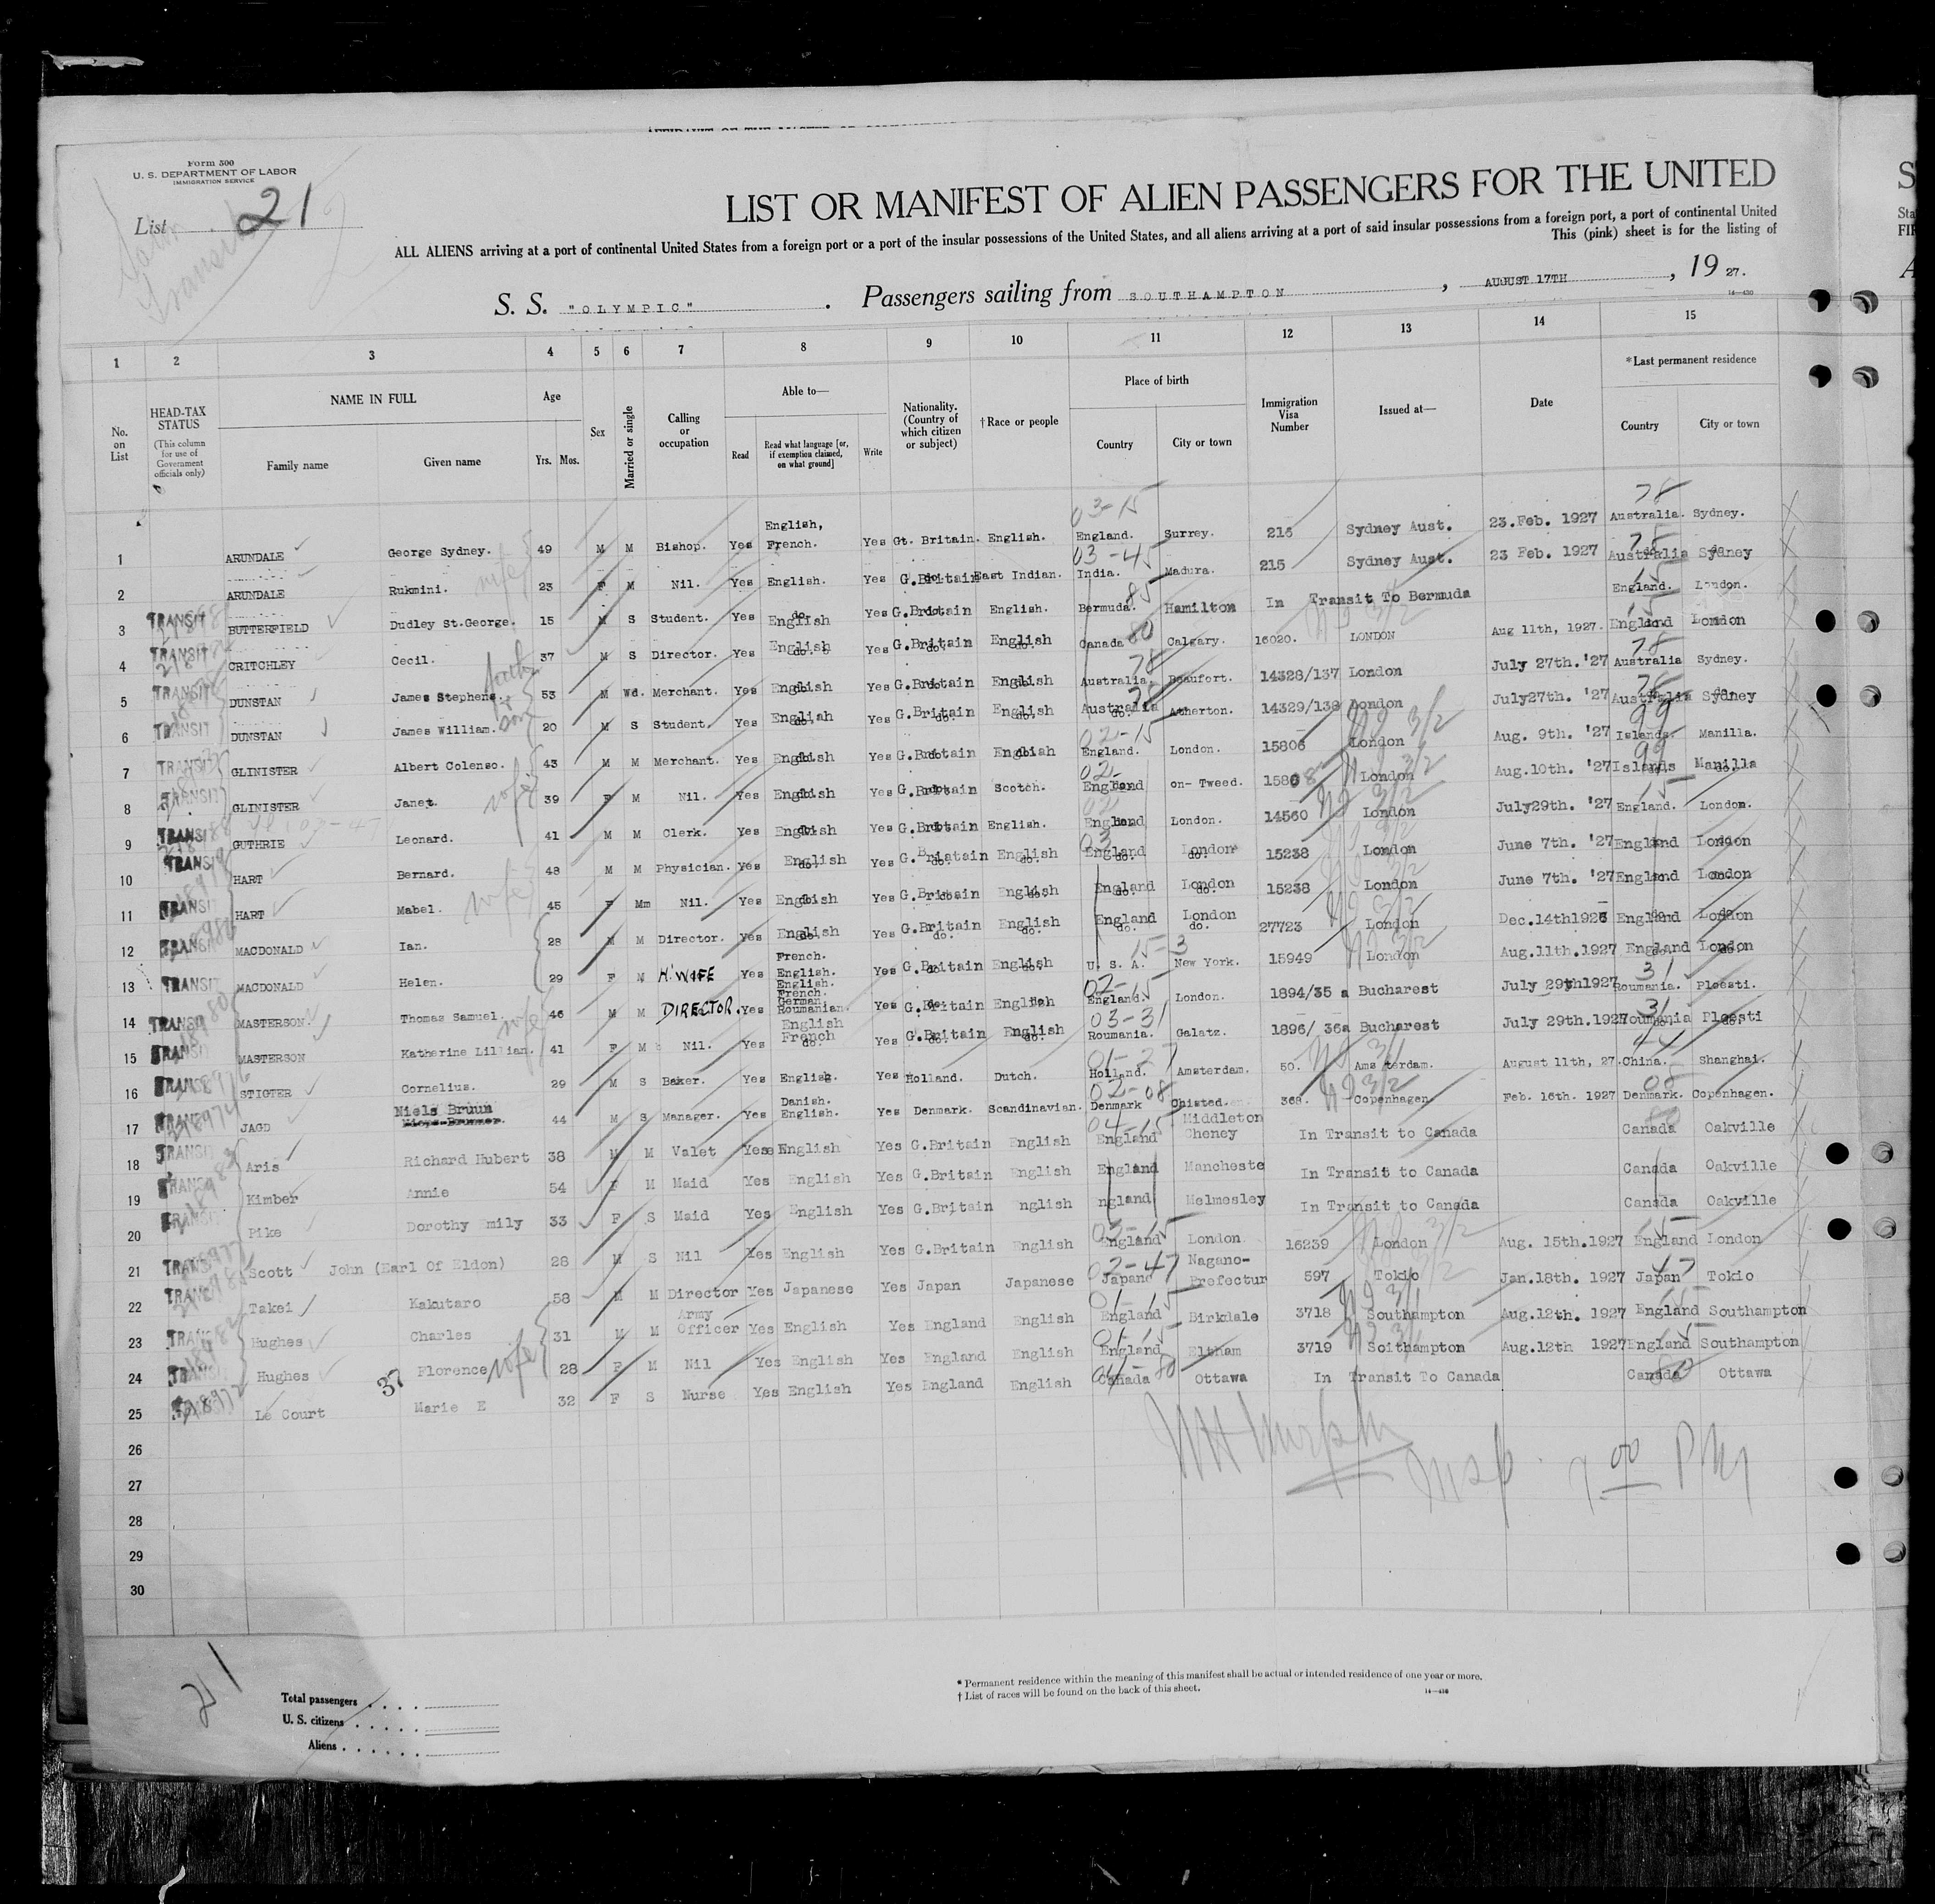 Form 500
U. S. DEPARTMENT OF LABOR
IMMIGRATION SERVICE
List 21
LIST OR MANIFEST OF ALIEN PASSENGERS FOR THE UNITED
ALL ALIENS arriving at a port of continental United States from a foreign port or a port of the insular possessions of the United States, and all aliens arriving at a port of said insular possessions from a foreign port, a port of continental United
This (pink) sheet is for the listing of
S. S. "OLYMPIC" . Passengers sailing from SOUTHAMPTON , AUGUST 17TH , 19 27.
1 2 3 4 5 6 7 8 9 10 11 12 13 14 15
No. on List
HEAD-TAX STATUS
(This column for use of Government officials only)
NAME IN FULL
Family name Given name
Age
Yrs. Mos.
Sex
Married or single
Calling or occupation
Able to—
Read Read what language [or, if exemption claimed, on what ground] Write
Nationality. (Country of which citizen or subject)
†Race or people
Place of birth
Country City or town
Immigration Visa Number
Issued at—
Date
*Last permanent residence
Country City or town
1 ARUNDALE George Sydney. 49 M M Bishop. Yes English, French. Yes Gt. Britain. English. England. Surrey. 216 Sydney Aust. 23.Feb. 1927 Australia. Sydney.
2 ARUNDALE Rukmini. 23 F M Nil. Yes English. Yes G.Britain East Indian. India. Madura. 215 Sydney Aust. 23 Feb. 1927 Australia Sydney
3 TRANSIT BUTTERFIELD Dudley St.George. 15 M S Student. Yes English Yes G.Britain English. Bermuda. Hamilton In Transit To Bermuda England. London.
4 TRANSIT CRITCHLEY Cecil. 37 M S Director. Yes English Yes G.Britain English Canada Calgary. 16020. LONDON Aug 11th, 1927. England London
5 TRANSIT DUNSTAN James Stephens. 53 M Wd. Merchant. Yes English Yes G.Britain English Australia. Beaufort. 14328/137 London July 27th. '27 Australia Sydney.
6 TRANSIT DUNSTAN James William. 20 M S Student. Yes English Yes G.Britain English Australia Atherton. 14329/138 London July27th. '27 Australia Sydney
7 TRANSIT GLINISTER Albert Colenso. 43 M M Merchant. Yes English Yes G.Britain English England. London. 15806 London Aug. 9th. '27 Islands. Manilla.
8 TRANSIT GLINISTER Janet. wife 39 F M Nil. Yes English Yes G.Britain Scotch. England on- Tweed. 15808 London Aug.10th. '27 Islands Manilla
9 TRANSIT GUTHRIE Leonard. 41 M M Clerk. Yes English Yes G.Britain English. England London. 14560 London July29th. '27 England. London.
10 TRANSIT HART Bernard. 48 M M Physician. Yes English Yes G.Britain English England London 15238 London June 7th. '27 England London
11 TRANSIT HART Mabel. wife 45 F Mm Nil. Yes English Yes G.Britain English England London 15238 London June 7th. '27 England London
12 TRANSIT MACDONALD Ian. 28 M M Director. Yes English Yes G.Britain English England London 27723 London Dec.14th1926 England London
13 TRANSIT MACDONALD Helen. 29 F M H'WIFE Yes French. English. Yes G.Britain English U. S. A. New York. 15949 London Aug.11th.1927 England London
14 TRANSIT MASTERSON. Thomas Samuel. 46 M M DIRECTOR. Yes English. French. German. Roumanian. Yes G.Britain English England. London. 1894/35 a Bucharest July 29th1927 Roumania. Ploesti.
15 TRANSIT MASTERSON Katherine Lillian. wife 41 F M Nil. Yes English French Yes G.Britain English Roumania. Galatz. 1896/ 36a Bucharest July 29th.1927 Roumania Ploesti
16 TRANSIT STIGTER Cornelius. 29 M S Baker. Yes English. Yes Holland. Dutch. Holland. Amsterdam. 50. Amsterdam. August 11th, 27. China. Shanghai.
17 TRANSIT JAGD Niels Bruun 44 M S Manager. Yes Danish. English. Yes Denmark. Scandinavian. Denmark Chisted. 368. Copenhagen Feb. 16th. 1927 Denmark. Copenhagen.
18 TRANSIT Aris Richard Hubert 38 M M Valet Yes English Yes G.Britain English England Middleton Cheney In Transit to Canada Canada Oakville
19 TRANSIT Kimber Annie 54 F M Maid Yes English Yes G.Britain English England Mancheste In Transit to Canada Canada Oakville
20 TRANSIT Pike Dorothy Emily 33 F S Maid Yes English Yes G.Britain nglish ngland Helmesley In Transit to Canada Canada Oakville
21 TRANSIT Scott John (Earl Of Eldon) 28 M S Nil Yes English Yes G.Britain English England London 16239 London Aug. 15th.1927 England London
22 TRANSIT Takei Kakutaro 58 M M Director Yes Japanese Yes Japan Japanese Japan Nagano- Prefectur 597 Tokio Jan.18th. 1927 Japan Tokio
23 TRANSIT Hughes Charles 31 M M Army Officer Yes English Yes England English England Birkdale 3718 Southampton Aug.12th. 1927 England Southampton
24 TRANSIT Hughes Florence wife 28 F M Nil Yes English Yes England English England Eltham 3719 Soithampton Aug.12th 1927 England Southampton
25 Le Court 37 Marie E 32 F S Nurse Yes English Yes England English Canada Ottawa In Transit To Canada Canada Ottawa
26
27
28
29
30
7 00 PM
21
Total passengers
U. S. citizens
Aliens
* Permanent residence within the meaning of this manifest shall be actual or intended residence of one year or more.
† List of races will be found on the back of this sheet.